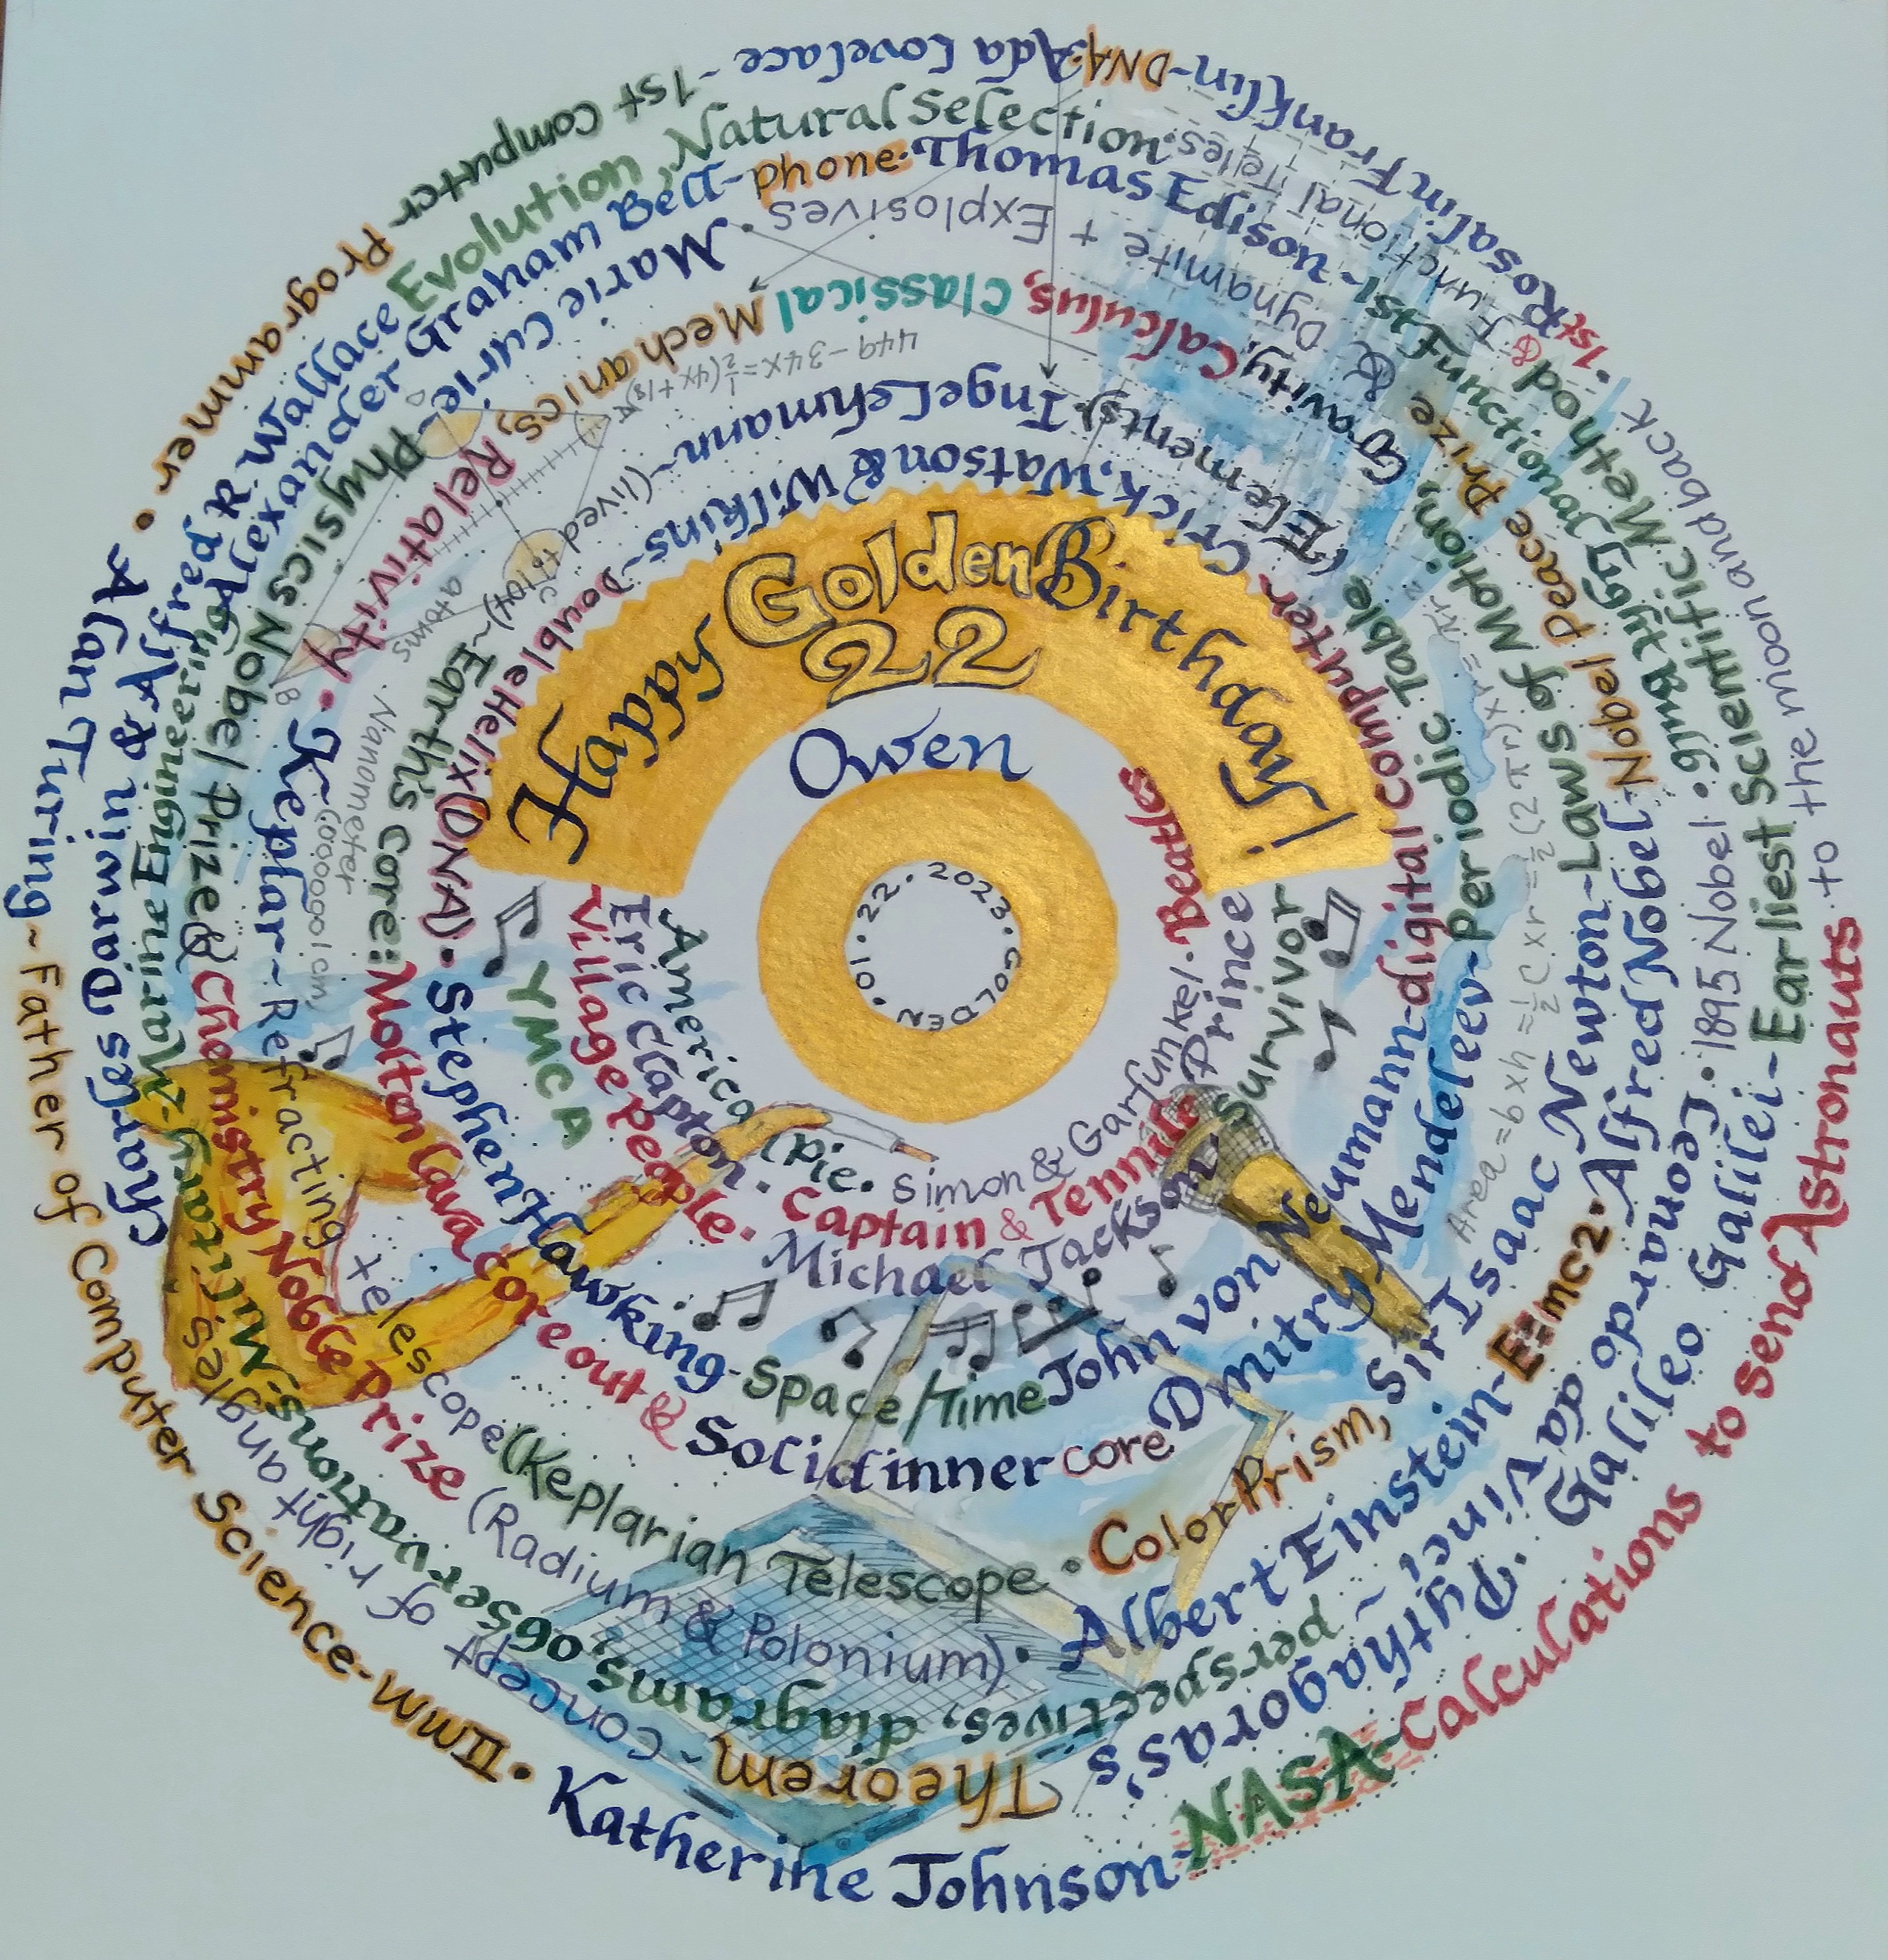 Happy Golden Birthday!
22
Owen
10.22.2023. GOLDEN
American Pie. Simon & Garfunkel. Beatles
Eric Clapton. Captain & Tennille
Prince
Village People. Michael Jackson
Survivor
YMCA
Crick, Watson & Wilkins - Double Helix (DNA). Stephen Hawking - Space/Time John von Neumann - digital computer
Inge Lehmann ~ (lived to 104) ~ Earth's core: Molton lava core out & Solid inner core
Dmitry Mendeleev - Periodic Table (Elements).
Keplar ~ Refracting Telescope (Keplarian Telescope.
Sir Isaac Newton - Laws of Motion, Gravity, Calculus, Classical Mechanics, Relativity. Color Prism,
Marie Curie - Physics Nobel Prize & Chemistry Noble Prize (Radium & Polonium).
Albert Einstein - E=mc2.
Alfred Nobel - Nobel Peace Prize & Dynamite + Explosives.
1895 Nobel.
Alexander Graham Bell - phone. Thomas Edison - 1st Functional Light Bulb.
Leonardo da Vinci ~ perspectives, diagrams, observations: Military & Marine Engineering
Charles Darwin & Alfred R. Wallace Evolution, Natural Selection.
Galileo Galilei - Earliest Scientific Method & 1st Functional Teles.
Pythagoras's Theorem ~ concept of right angles.
Alan Turing ~ Father of Computer Science - WWII.
Katherine Johnson - NASA - Calculations to send Astronauts to the moon and back.
Rosalin Franklin - DNA.
Ada Lovelace - 1st Computer Programmer.
449 - 34x = ½(4x+18)
atoms
Nanometer
Googol cm
B
C
Area = b x h = ½ C x r = ½ (2πr) x r = πr²